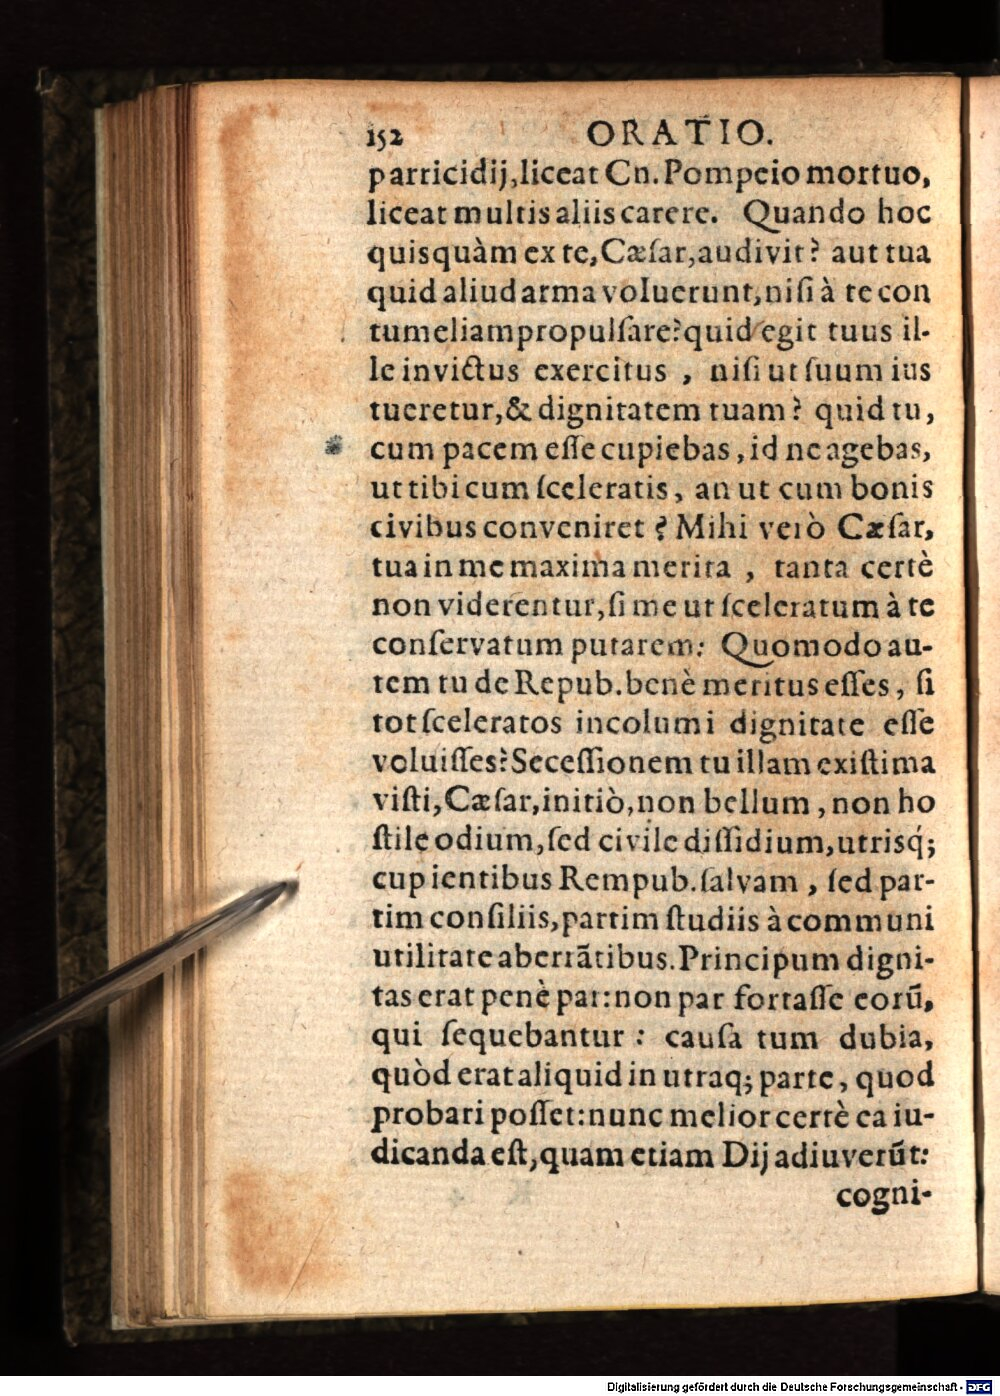 152 ORATIO.
parricidij,liceat Cn. Pompeio mortuo,
liceat multis aliis carere. Quando hoc
quisquàm ex te, Cæſar, audivit? aut tua
quid aliud arma voluerunt, niſi à te con
tumeliam propulſare? quid egit tuus il-
le invictus exercitus , niſi ut ſuum ius
tueretur, & dignitatem tuam? quid tu,
cum pacem eſſe cupiebas, id ne agebas,
ut tibi cum ſceleratis, an ut cum bonis
civibus conveniret? Mihi verò Cæſar,
tua in me maxima merita , tanta certè
non viderentur, ſi me ut ſceleratum à te
conſervatum putarem: Quomodo au-
tem tu de Repub. benè meritus eſſes, ſi
tot ſceleratos incolumi dignitate eſſe
voluiſſes? Seceſſionem tu illam exiſtima
viſti, Cæſar, initiò, non bellum, non ho
ſtile odium, ſed civile diſſidium, utriſq́;
cupientibus Rempub. ſalvam , ſed par-
tim conſiliis, partim ſtudiis à communi
utilitate aberrãtibus. Principum digni-
tas erat penè par: non par fortaſſe eorũ,
qui ſequebantur : cauſa tum dubia,
quòd erat aliquid in utraq; parte, quod
probari poſſet: nunc melior certè ea iu-
dicanda eſt, quam etiam Dij adiuverũt:
cogni-
Digitalisierung gefördert durch die Deutsche Forschungsgemeinschaft - DFG